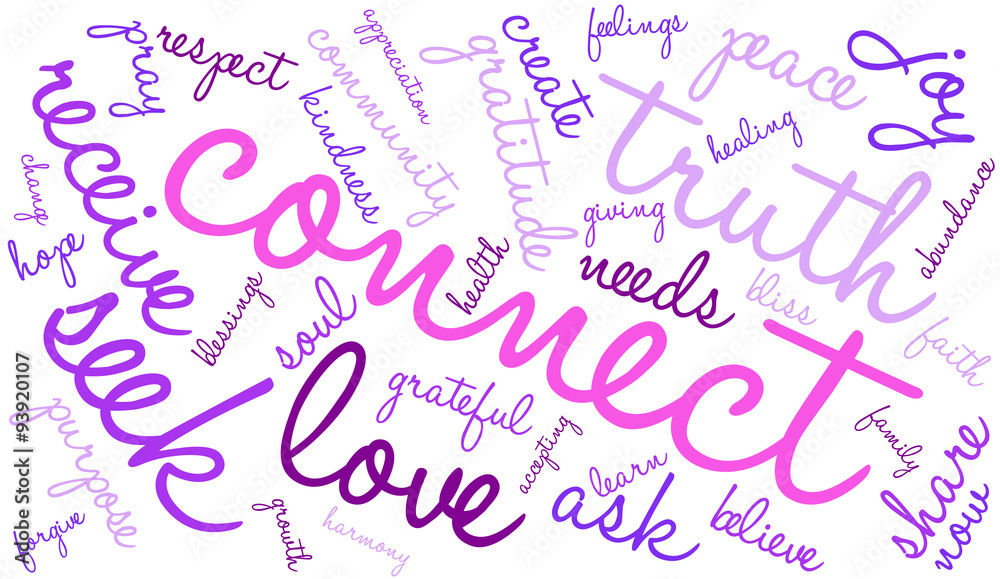 pray
respect
community
appreciation
gratitude
create
feelings
peace
joy
receive
kindness
truth
healing
change
connect
giving
abundance
hope
needs
health
bliss
blessings
soul
faith
seek
love
grateful
accepting
family
purpose
learn
ask
believe
share
now
forgive
growth
harmony
Adobe Stock | #93920107